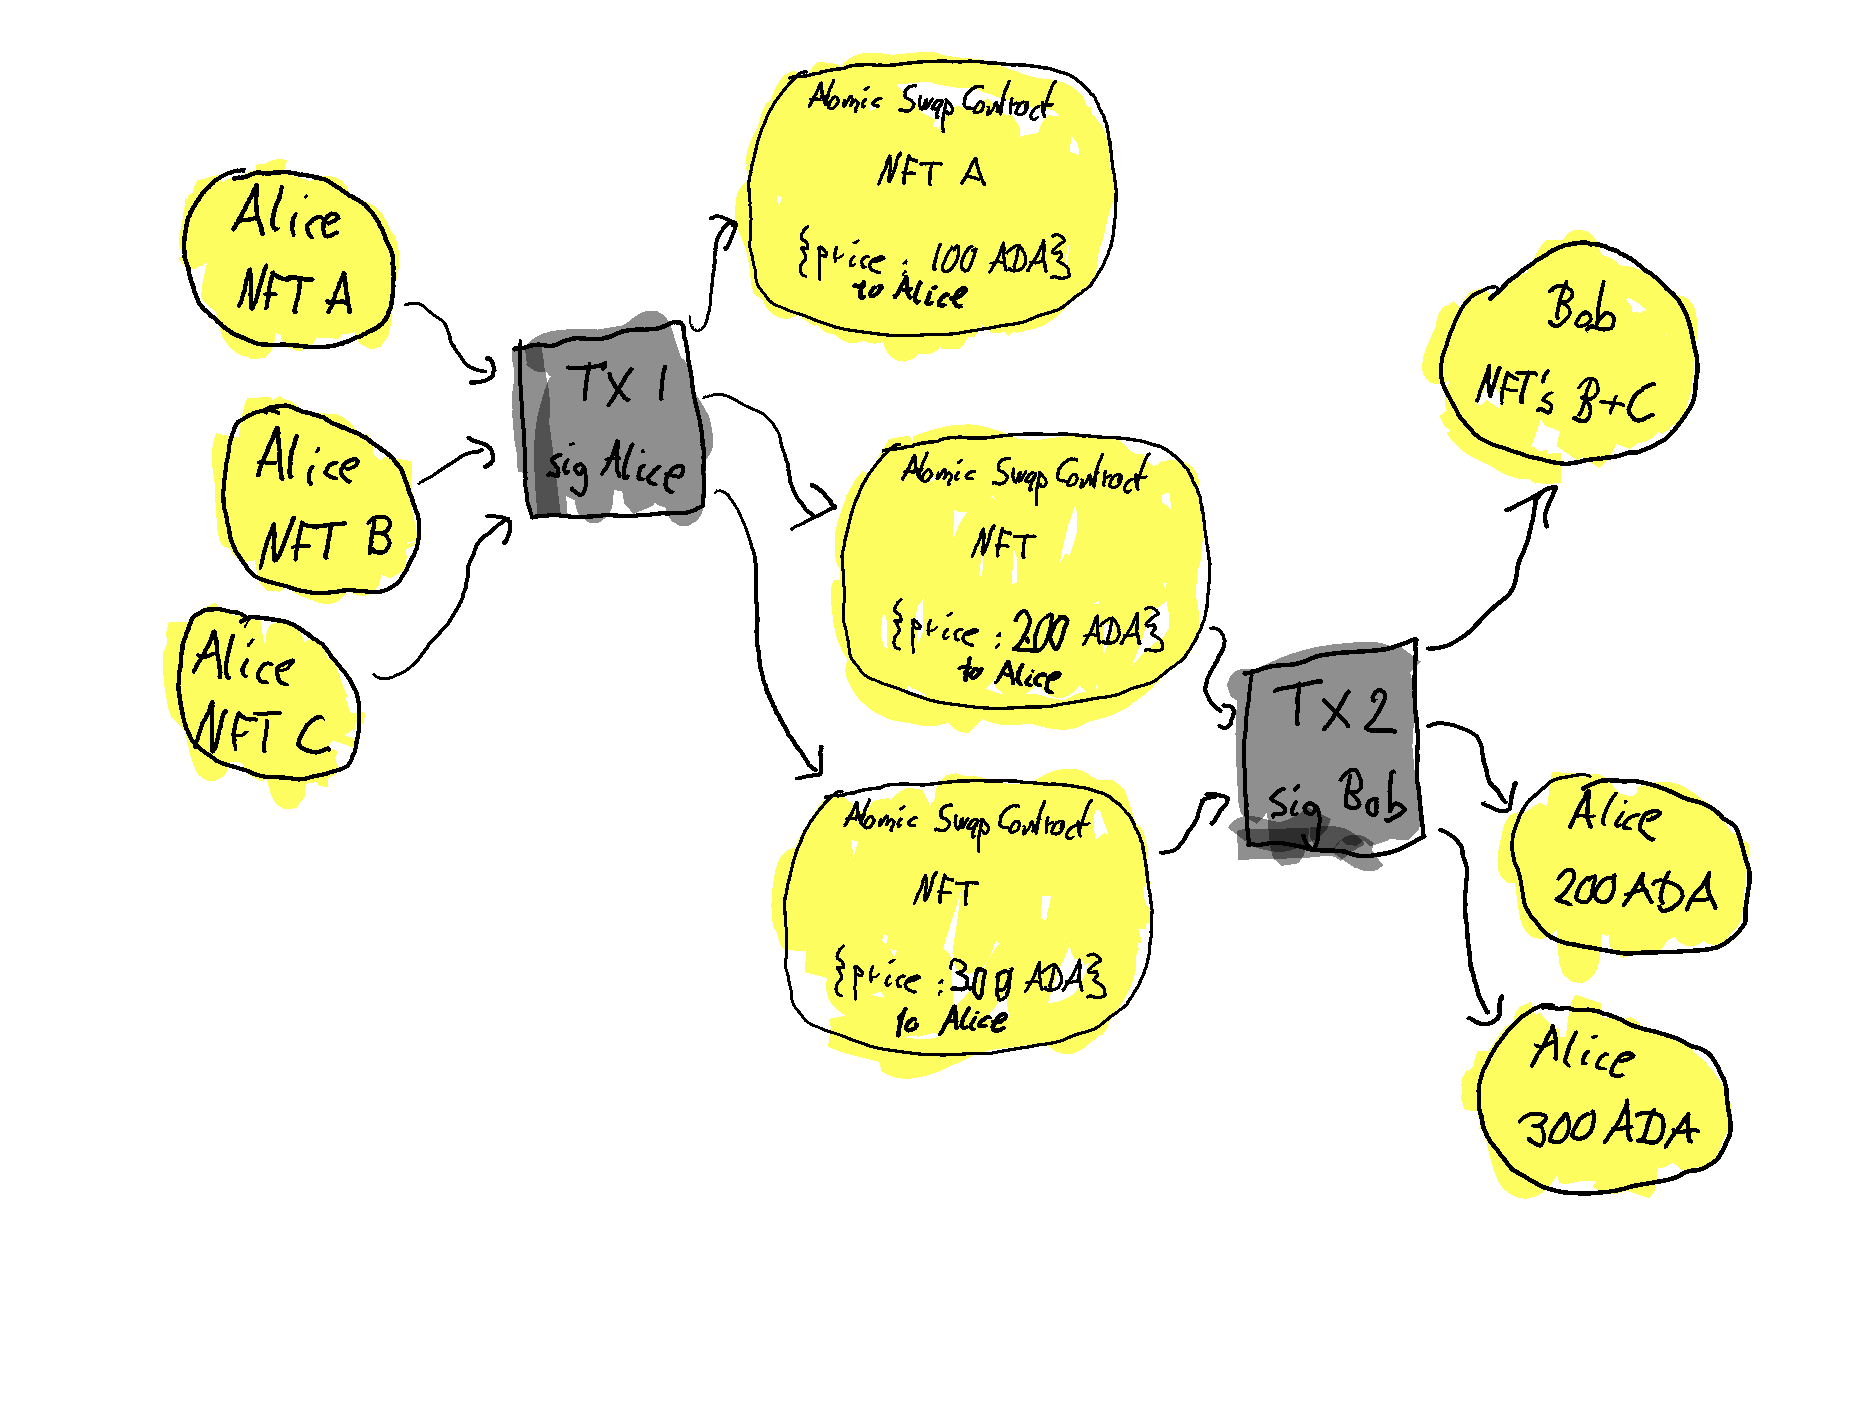 Alice
NFT A
Alice
NFT B
Alice
NFT C
TX 1
sig Alice
Atomic Swap Contract
NFT A
{price : 100 ADA}
to Alice
Atomic Swap Contract
NFT
{price : 200 ADA}
to Alice
Atomic Swap Contract
NFT
{price : 300 ADA}
to Alice
TX 2
sig Bob
Bob
NFT's B+C
Alice
200 ADA
Alice
300 ADA